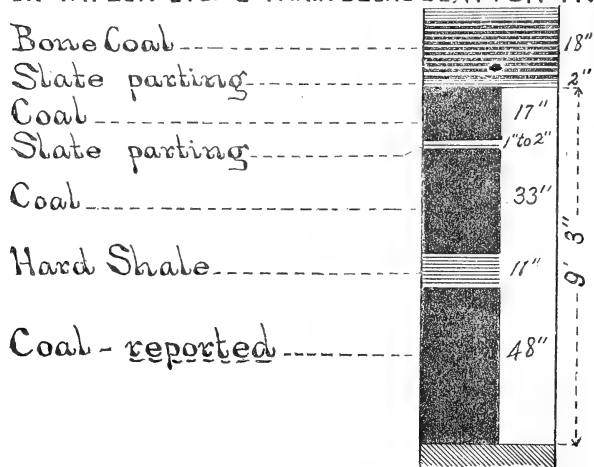 Bone Coal 18"
Slate parting 2"
Coal 17"
Slate parting 1" to 2"
Coal 33"
Hard Shale 11"
Coal - reported 48"
9' 3"